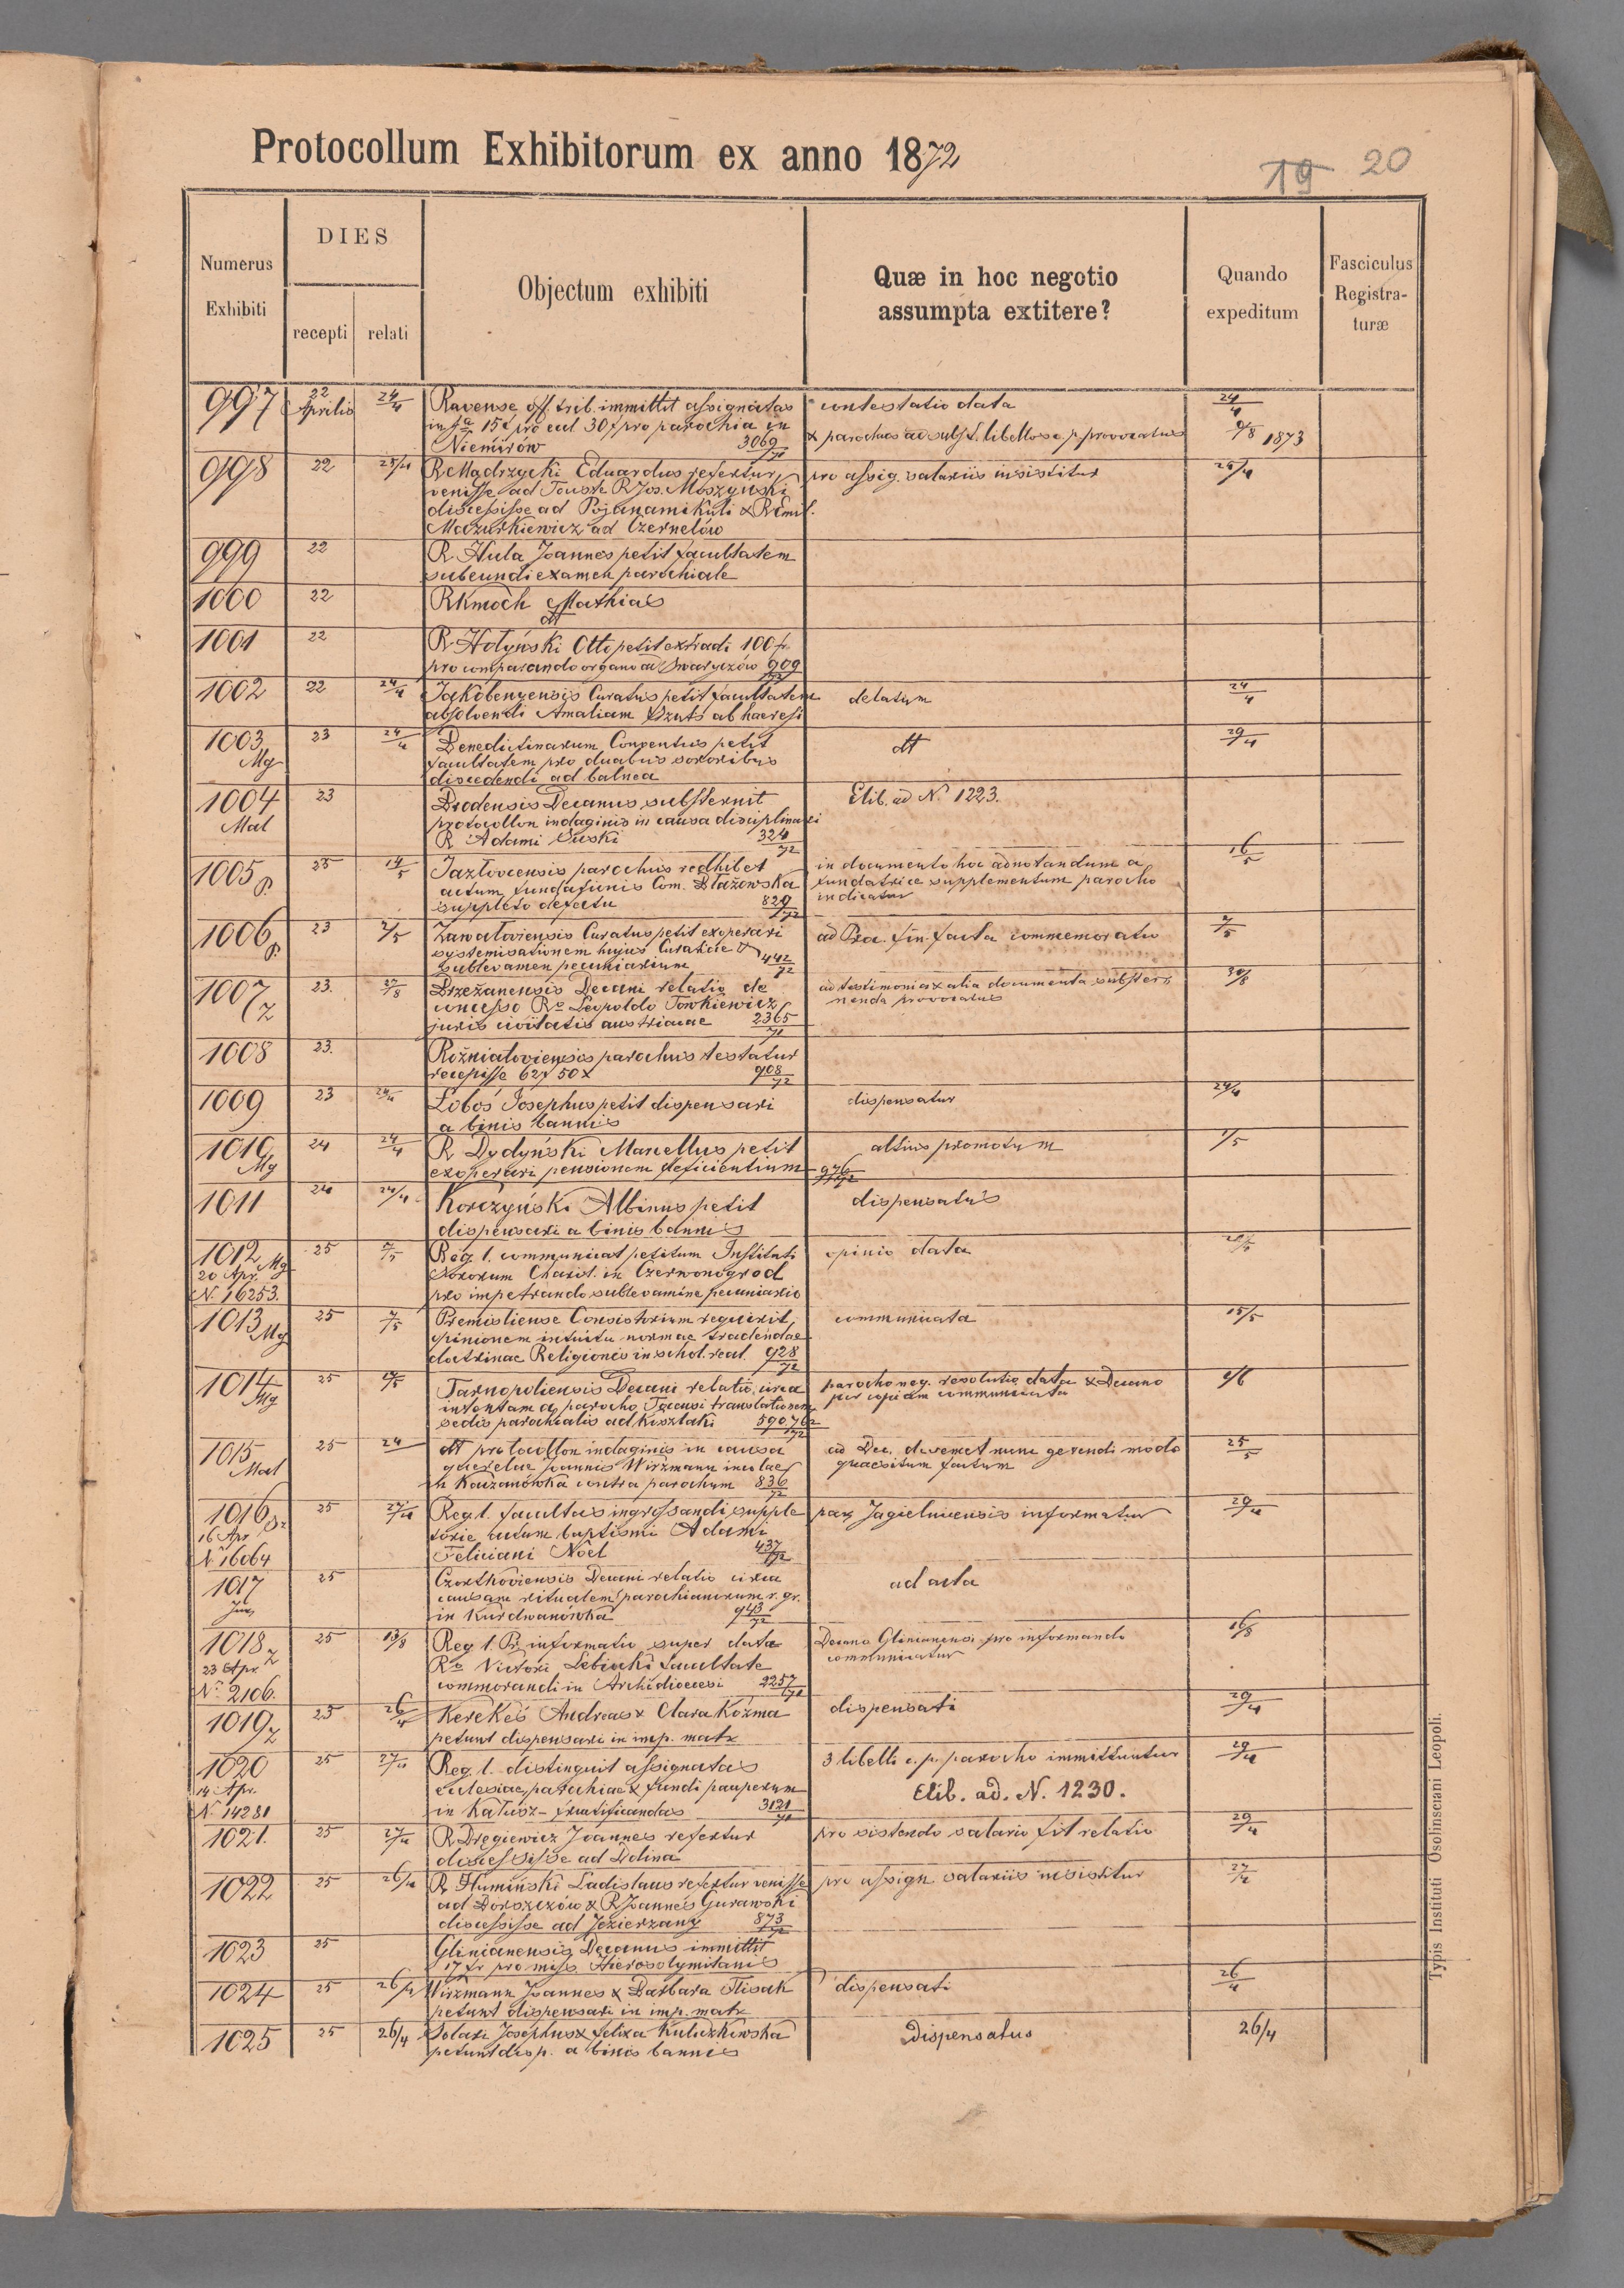 Protocollum Exhibitorum ex anno 1872
19 20
Numerus Exhibiti
DIES
recepti relati
Objectum exhibiti
Quæ in hoc negotio
assumpta extitere?
Quando
expeditum
Fasciculus
Registra-
turæ
997 22 Aprilis 24/4 Ravense off. trib. immittit assignatas contestatio data 24/4
pro parochia in & parochus ad 9/8 1873
Niemirów 3069/71
998 22 25/4 R Madrzycki Eduardus refertur pro assig. salariis insistitur 25/4
venisse ad Touste R Jos. Moszyński
discessisse ad Pojanamikuli & R Emil.
Mazurkiewicz ad Czernelów
999 22 R Hula Joannes petit facultatem
subeundi examen parochiale
1000 22 R Kmoch Mathias
dt
1001 22 R Hołyński Otto petit extradi 100 fr
pro comparando organo ad Swaryczów 909/72
1002 22 24/4 Jakobenyensis Curatus petit facultatem delatum 24/4
absolvendi Amaliam ab haeresi
1003 Mg 23 24/4 Benedictinarum Conventus petit dt 29/4
facultatem pro duabus sororibus
discedendi ad balnea
1004 Mal 23 Brodensis Decanus substernit Elib. ad N. 1223.
protocollon indaginis in causa disciplinari
R Adami 324/72
1005 p 23 14/5 Jazłoviecensis parochus redhibet in documento hoc adnotandum a 16/5
actum fundationis Com. Błażowska fundatrice supplementum parocho
suppleto defectu 829/72 indicatur
1006 p. 23 2/5 Zawałoviensis Curatus petit exoperari ad Pra. fin. facta commemoratio 7/5
systemisationem hujus Curatiae &
sublevamen pecuniarium 442/72
1007 z 23. 27/8 Brzeżanensis Decani relatio de ad testimonia & alia documenta subster- 30/8
concesso Ro Leopoldo Towkiewicz nenda provocatus
juris civitatis austriacae 2365/71
1008 23. Rożniatoviensis parochus testatur
recepisse 62f 50x 908/72
1009 23 24/4 Łoboś Josephus petit dispensari dispensatur 24/4
a binis bannis
1010 Mg 24 24/4 R Dydyński Marcellus petit altius promotum 1/5
exoperari pensionem deficientium 976/72
1011 24 24/4 Korczyński Albinus petit dispensatus
dispensari a binis bannis
1012 Mg 25 7/5 Reg. l. communicat petitum Instituti opinio data
20 Apr. Sororum Charit. in Czerwonogrod
N. 16253. pro impetrando sublevamine pecuniario
1013 Mg 25 7/5 Premisliense Consistorium requirit communicata 15/5
opinionem intuitu normae tradendae
doctrinae Religionis in schol. real. 928/72
1014 Mg 25 Tarnopoliensis Decani relatio circa parocho neg. resolutio data & Decano
intentam a parocho translationem per copiam communicata
sedis parochialis ad
1015 Mal 25 24 dt protocollon indaginis in causa ad Dec. de gerendi modo 25/5
querelae Joannis Wirzmann incolae quaesitum factum
in Kaczanówka contra parochum 836/72
1016 25 27/4 Reg. l. facultas ingrossandi supple par. Jagielnicensis informatur 29/4
16 Apr torie actum baptismi Adami
N 16064 Feliciani Noel 437/72
1017 25 Czortkoviensis Decani relatio circa ad acta
causam ritualem parochianorum r. gr.
in Kurdwanówka 943/72
1018 z 25 13/8 Reg. l. Pr. informatio super data Decano Glinianensi pro informando 16/8
23 Apr Ro Victori facultate communicatur
N. 2106. commorandi in Archidioecesi 2257/71
1019 z 25 26/4 Kerekeś Andreas & Clara Kozma dispensati 29/4
petunt dispensari in imp. matr
1020 25 27/4 Reg. l. distinguit assignatas 3 libelli c. p. parocho immittuntur 29/4
14 Apr. ecclesiae, parochiae & fundi pauperum Elib. ad. N. 1230.
N. 14281 in Kałusz - fructificandas 3121/71
1021. 25 27/4 R Dręgiewicz Joannes refertur pro sistendo salario fit relatio 29/4
discessisse ad Dolina
1022 25 26/4 R Humiński Ladislaus refertur venisse pro assign. salariis insistitur 27/4
ad Dorszczów & R Joannes Gurawski
discessisse ad Jezierzany 873/72
1023 25 Glinianensis Decanus immittit
17 fr pro miss. Hierosolymitanis
1024 25 26/4 Wirzmann Joannes & Barbara dispensati 26/4
petunt dispensari in imp. matr
1025 25 26/4 Josephus & Felixa Kulczkowska Dispensatus 26/4
petunt disp. a binis bannis
Typis Instituti Osolinsciani Leopoli.